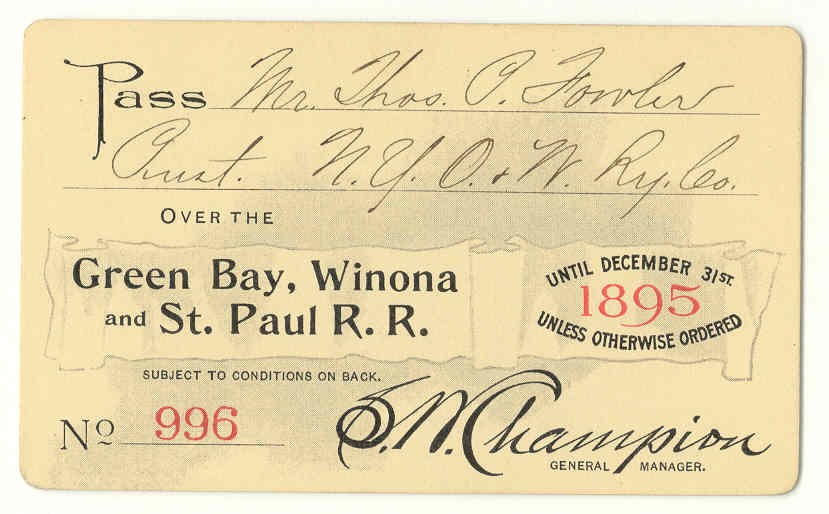 Pass Mr. Thos. P. Fowler
Prest. N.Y. O. & W. Ry. Co.
OVER THE
Green Bay, Winona
and St. Paul R. R.
UNTIL DECEMBER 31ST.
1895
UNLESS OTHERWISE ORDERED
SUBJECT TO CONDITIONS ON BACK.
No 996
S. W. Champion
GENERAL MANAGER.